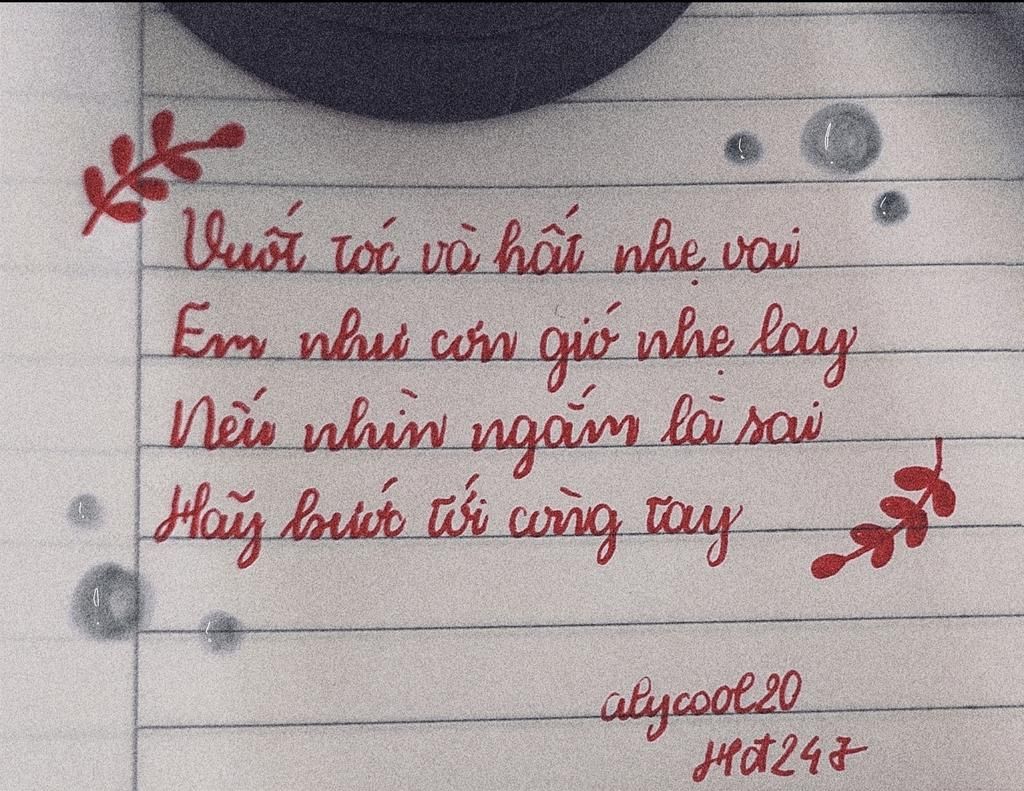 Vuốt tóc và hất nhẹ vai
Em như cơn gió nhẹ lay
Nếu nhìn ngắm là sai
Hãy bước tới còng tay
alycool20
Hđt247